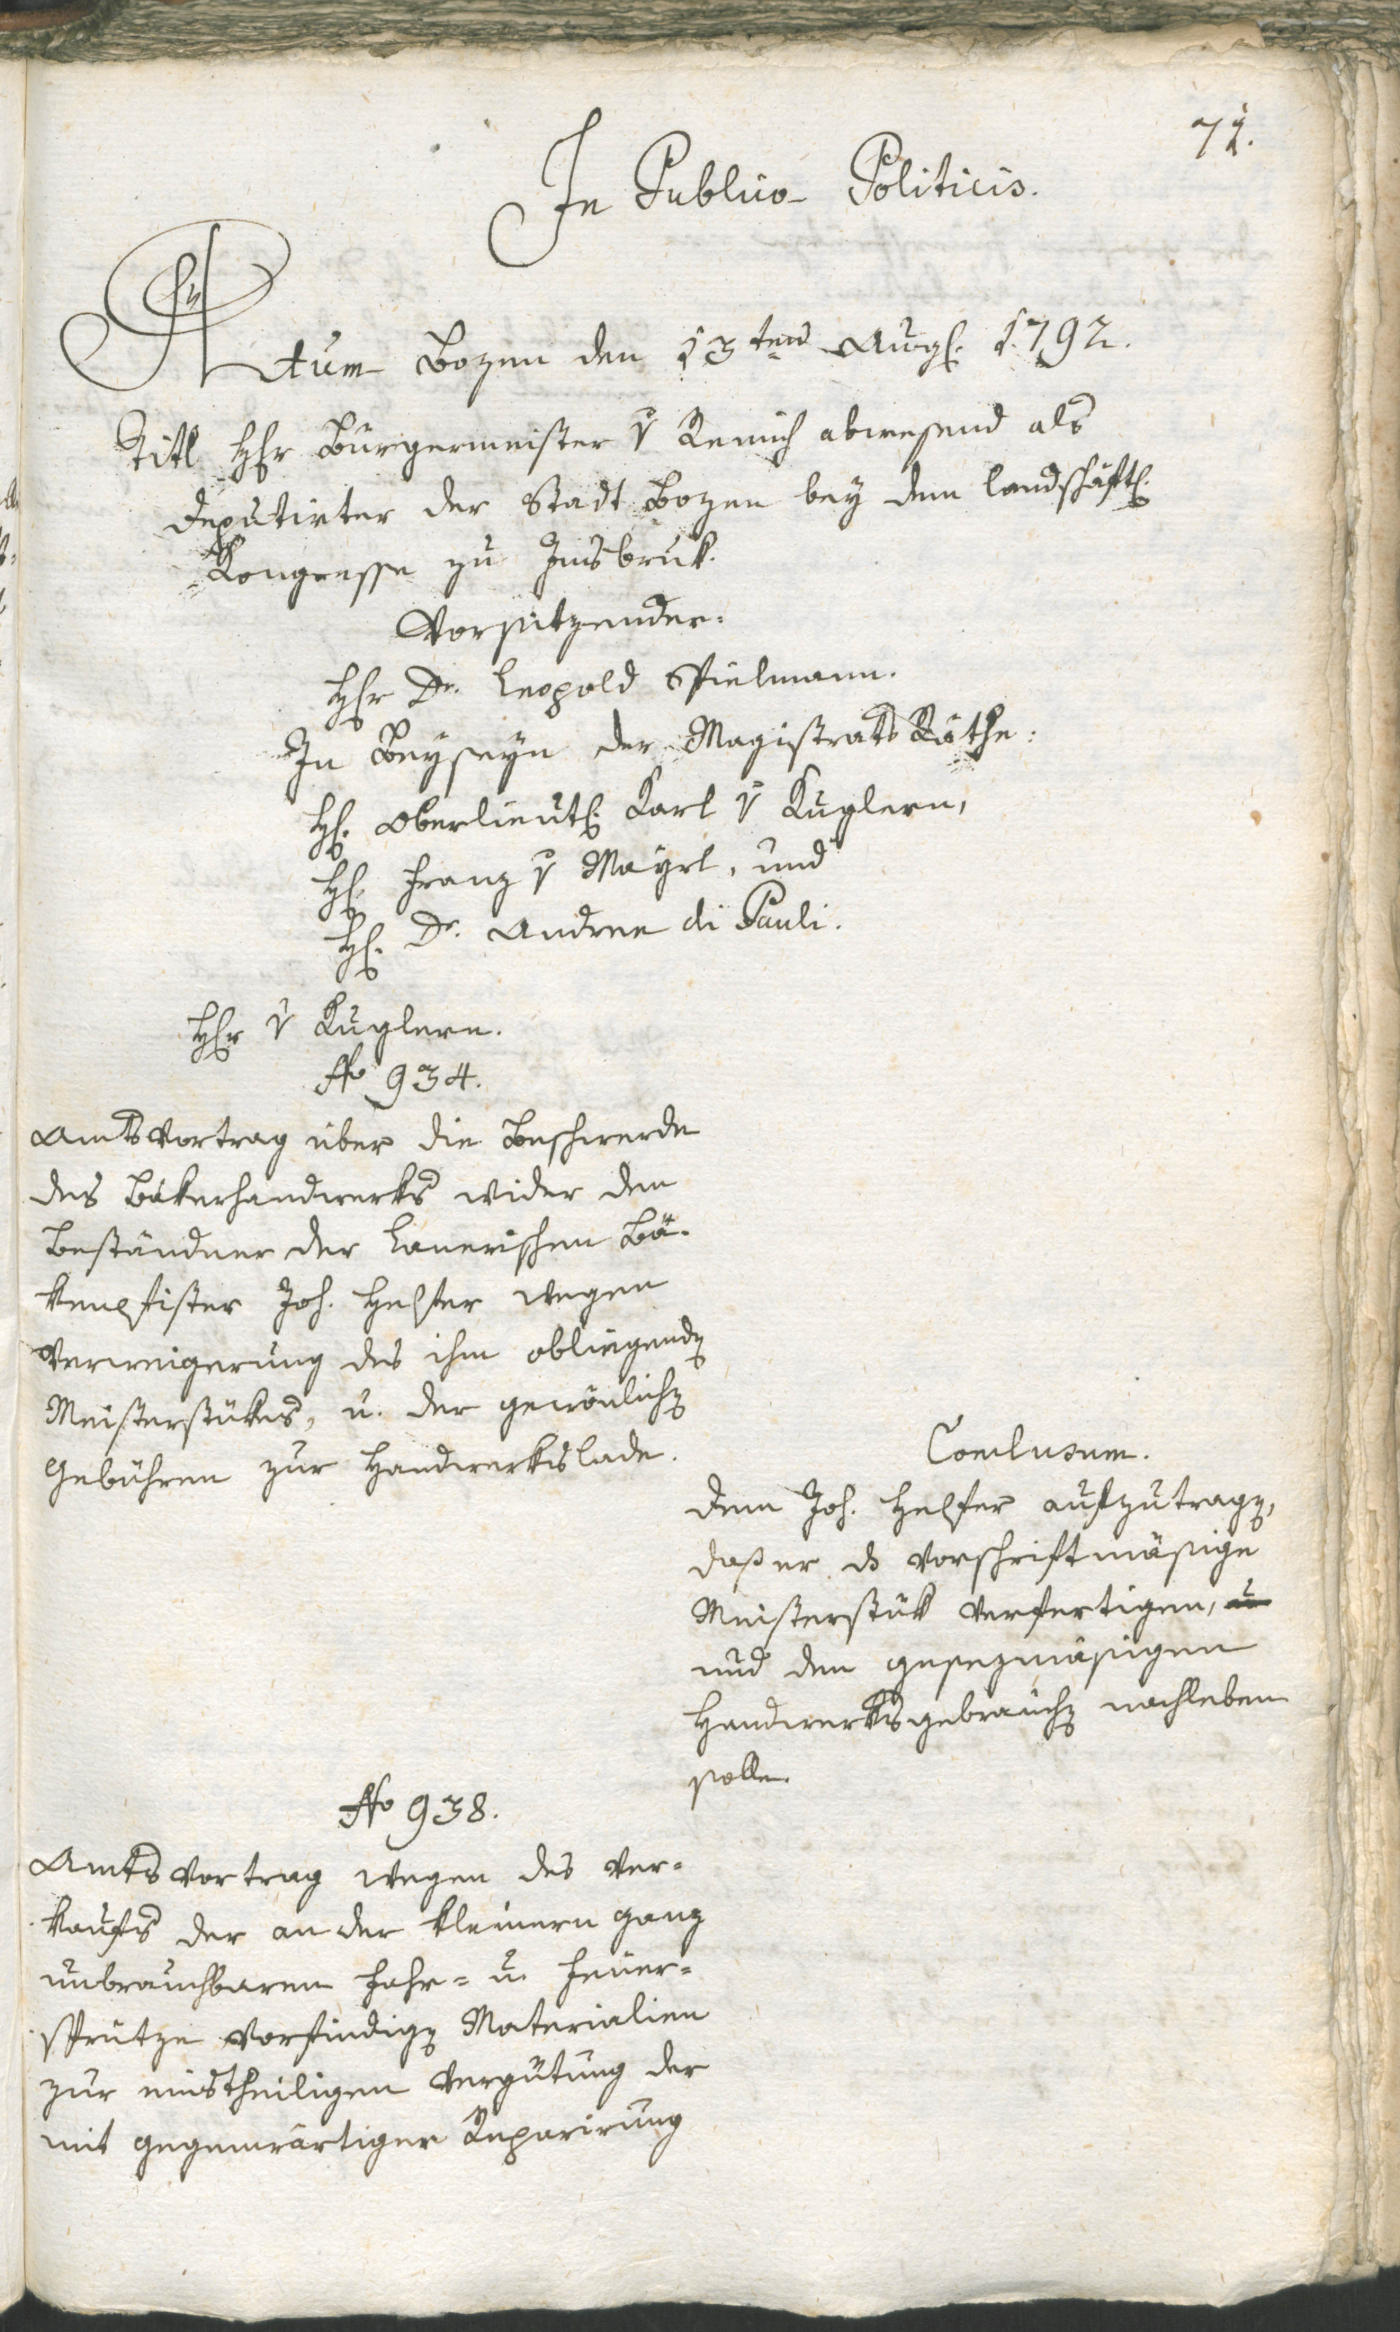 72.
In Publico Politicis.
Actum Bozen den 13ten Augs. 1792.
Titl Hhr Bürgermeister v Remich abwesend als
deputirter der Stadt Bozen bey dem landschäftl.
Kongresse zu Insbruk.
Vorsitzender.
Hhr Dr. Leopold Spielmann.
In Beyseyn der Magistrats Räthe:
Hh. Oberlieutn. Karl v Kuglern,
Hh. Franz v Mayrl, und
Hh. Dr. Andree di Pauli.
Hhr v Kuglern.
No 934.
Amtsvortrag über die Beschwerde
des Bäkerhandwerks wider den
Beständner der Lanerischen Bä-
kenpfister Joh. Helfer wegen
Verweigerung des ihm obliegenden
Meisterstükes, u. der gewönlichen
Gebühren zur Handwerkslade.
Conclusum.
Dem Joh. Helfer aufzutragen,
daß er ds vorschriftmäsige
Meisterstük verfertigen, u
und den gesezmäsigen
Handwerksgebräuchen nachleben
solle.
No 938.
Amtsvortrag wegen des Ver-
kaufs der an der kleinern ganz
unbrauchbaren Fahr- u. Feuer-
sprütze vorfindigen Materialien
zur einstheiligen Vergütung der
mit gegenwärtiger Reparirung